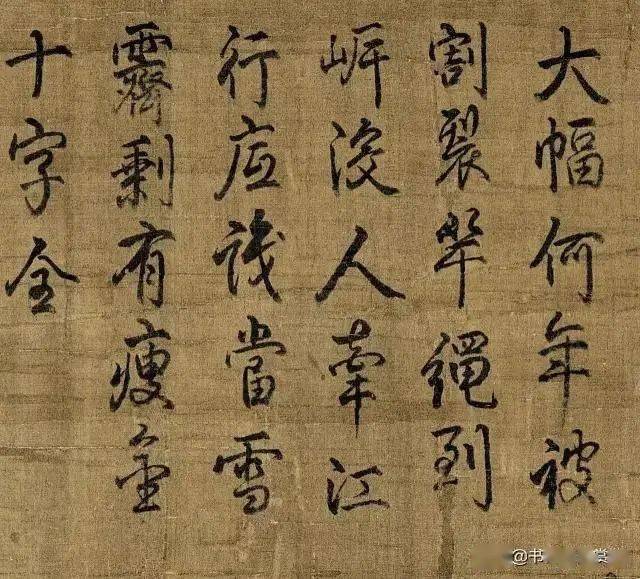 大幅何年被
割裂繩到
岸没人牽江
行應識當雪
霽剩有瘦金
十字全
@书 赏